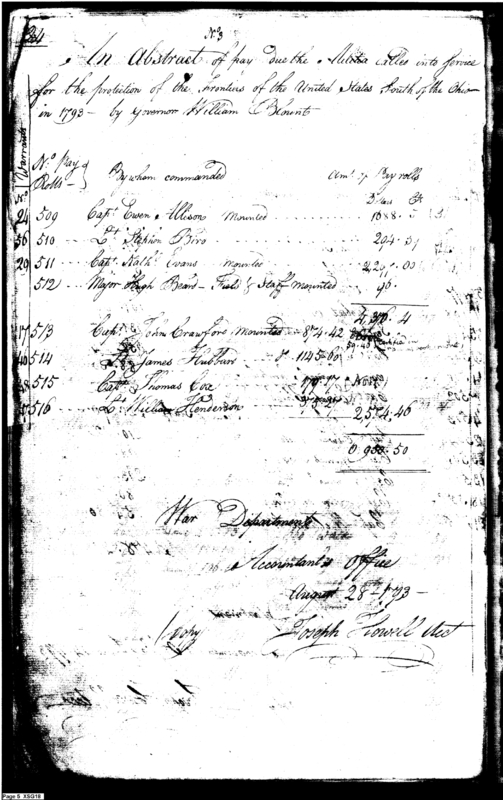 34
No 3
An Abstract of pay due the Militia called into service
for the protection of the frontiers of the United States South of the Ohio
in 1793 — by Governor William Blount
Warrants
No Pay Rolls
By whom commanded
Amt of Pay rolls
24 509 Capt Ewen Allison mounted 1688
56 510 Lt Stephen 294.
29 511 Capt Nathl Evans mounted 2,297.00
512 Major Hugh Beard Field & Staff mounted 96.
4,376.4
17 513 Capt John Crawford Mounted 874.42
40 514 James Hubbard 1145.60
515 Capt Thomas Cox
516 Lt William Henderson 2574.46
950.50
War Department
Accountants Office
August 28th 1793 —
(Copy Joseph Howell Act
Page 5 XSG18